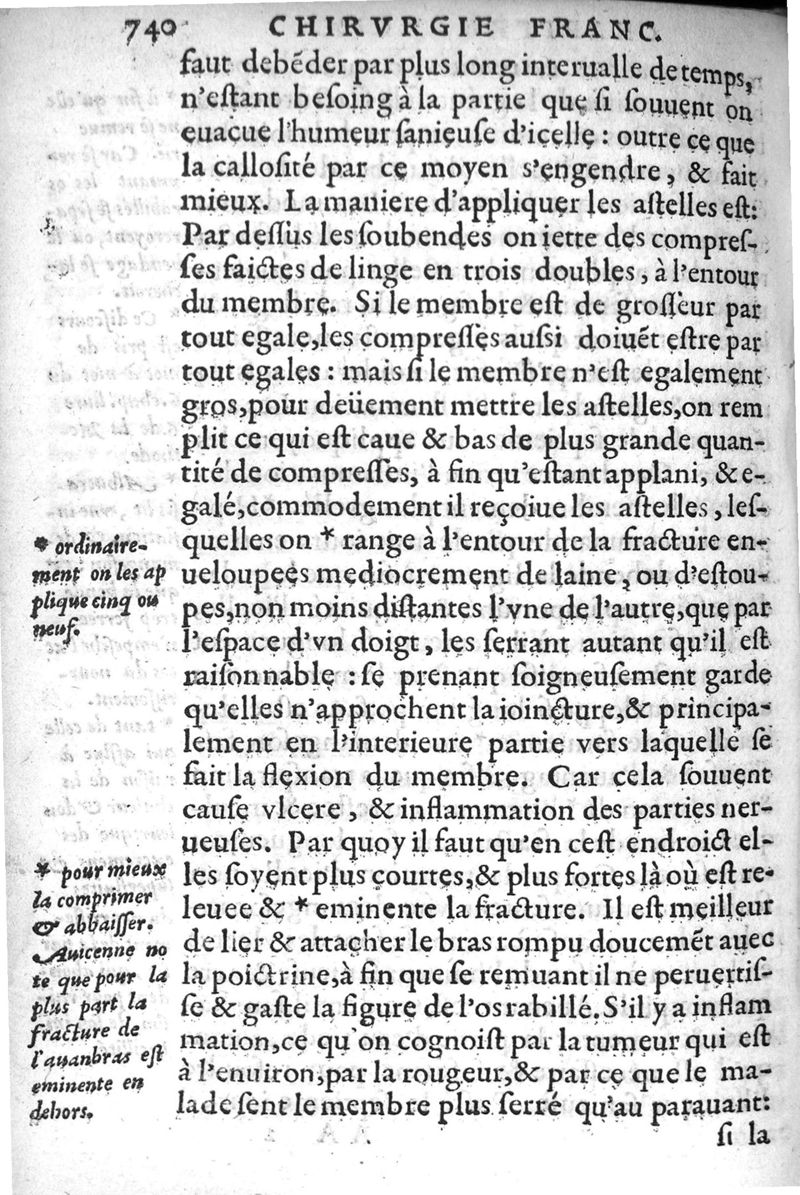 740 CHIRVRGIE FRANC.
faut debẽder par plus long interualle de temps,
n'eſtant beſoing à la partie que ſi ſouuent on
euacue l'humeur ſanieuſe d'icelle : outre ce que
la calloſité par ce moyen s'engendre, & fait
mieux. La maniere d'appliquer les aſtelles eſt:
Par deſſus les ſoubendes on iette des compreſ-
ſes faictes de linge en trois doubles, à l'entour
du membre. Si le membre eſt de groſſeur par
tout egale,les compreſſes auſsi doiuẽt eſtre par
tout egales : mais ſi le membre n'eſt egalement
gros,pour deüement mettre les aſtelles,on rem
plit ce qui eſt caue & bas de plus grande quan-
tité de compreſſes, à fin qu'eſtant applani, & e-
galé,commodement il reçoiue les aſtelles, leſ-
quelles on * range à l'entour de la fracture en-
ueloupees mediocrement de laine, ou d'eſtou-
pes,non moins diſtantes l'vne de l'autre,que par
l'eſpace d'vn doigt, les ſerrant autant qu'il eſt
raiſonnable : ſe prenant ſoigneuſement garde
qu'elles n'approchent la ioincture,& principa-
lement en l'interieure partie vers laquelle ſe
fait la flexion du membre. Car cela ſouuent
cauſe vlcere, & inflammation des parties ner-
ueuſes. Par quoy il faut qu'en ceſt endroict el-
les ſoyent plus courtes,& plus fortes là où eſt re-
leuee & * eminente la fracture. Il eſt meilleur
de lier & attacher le bras rompu doucemẽt auec
la poictrine,à fin que ſe remuant il ne peruertiſ-
ſe & gaſte la figure de l'os rabillé. S'il y a inflam
mation,ce qu'on cognoiſt par la tumeur qui eſt
à l'enuiron,par la rougeur,& par ce que le ma-
lade ſent le membre plus ſerré qu'au parauant:
ſi la
* ordinaire-
ment on les ap
plique cinq ou
neuf.
* pour mieux
la comprimer
& abbaiſſer.
Auicenne no
te que pour la
plus part la
fracture de
l'auanbras eſt
eminente en
dehors.